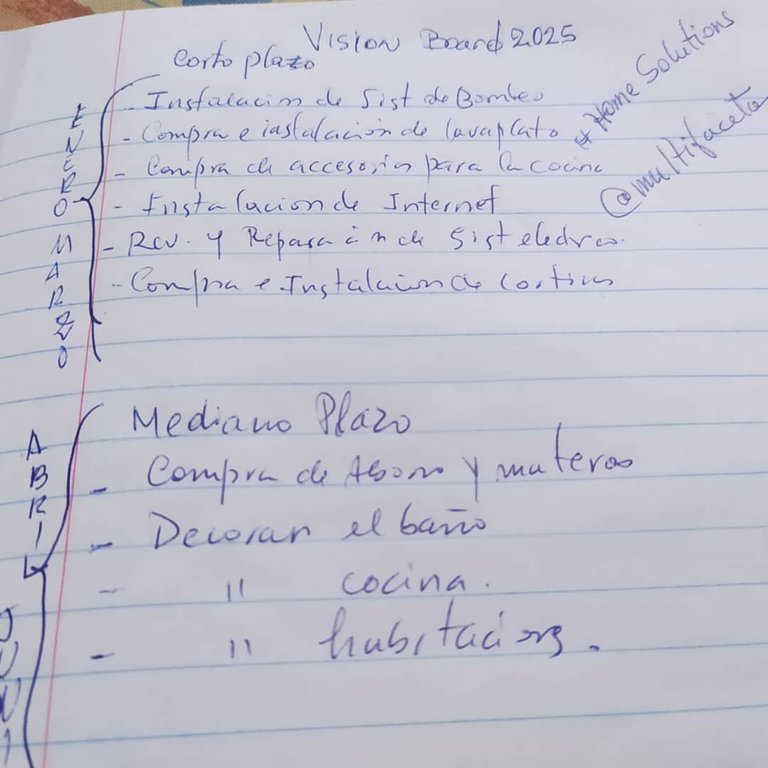 Vision Board 2025
Corto plazo
- Instalación de Sist de Bombeo
- Compra e instalación de lavaplato
- Compra de accesorios para la cocina
- Instalación de Internet
- Rev. y Reparación de Sist electrico.
- Compra e Instalacion de cortinas
* Home Solutions
@multifaceta
ENERO
MARZO
Mediano Plazo
- Compra de Abono y materos
- Decorar el baño
- " cocina.
- " habitaciones.
ABRIL
JUNI